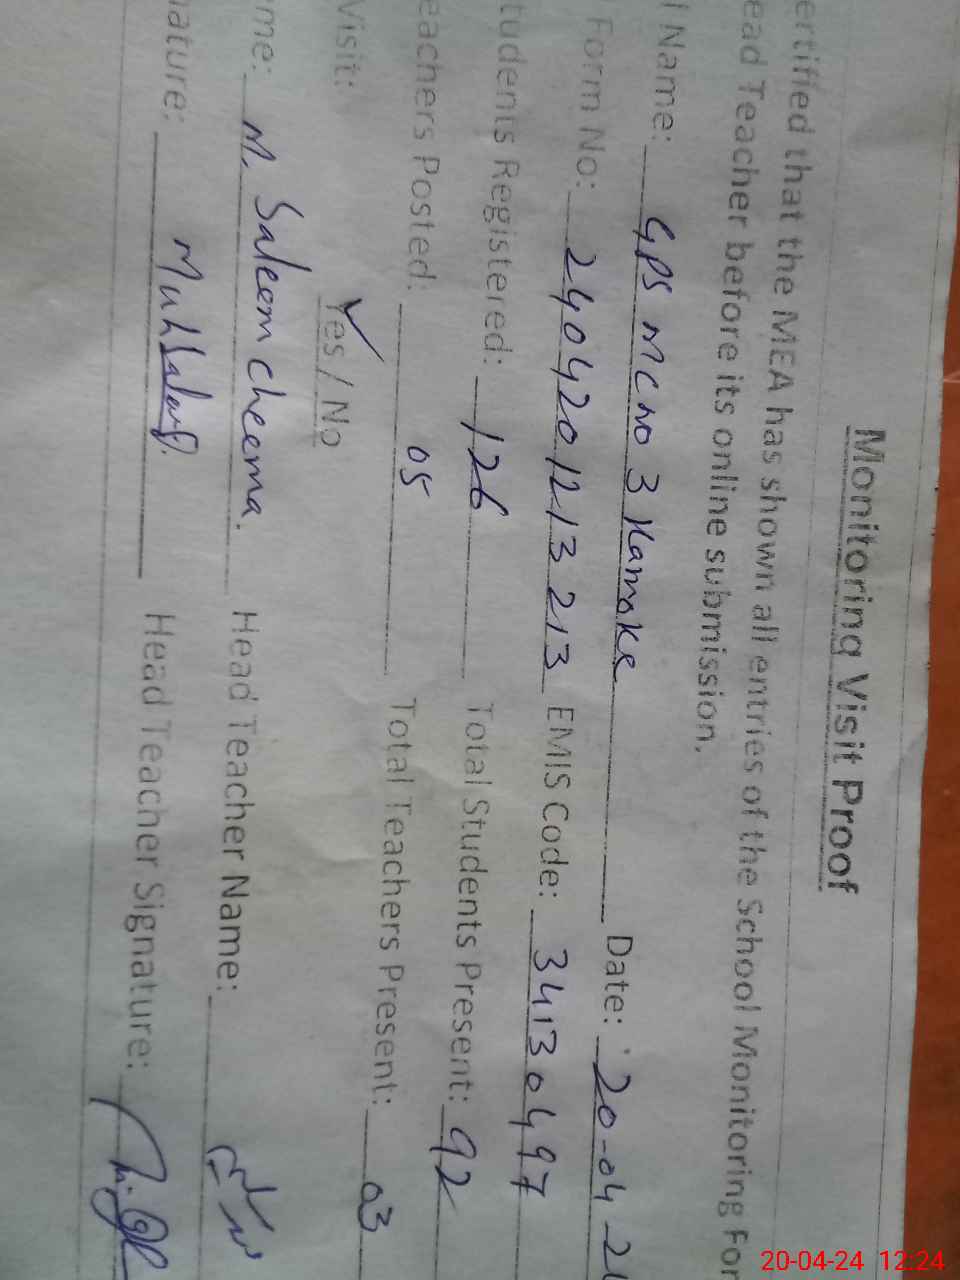 Monitoring Visit Proof
ertified that the MEA has shown all entries of the School Monitoring For
ead Teacher before its online submission.
l Name: GPS MC NO 3 Kamoke Date: 20-04-2
Form No: 2404201213213 EMIS Code: 34130497
tudents Registered: 126 Total Students Present: 92
eachers Posted: 05 Total Teachers Present: 03
Visit: Yes / No
me: M. Saleem Cheema. Head Teacher Name:
nature: Head Teacher Signature:
20-04-24 12:24